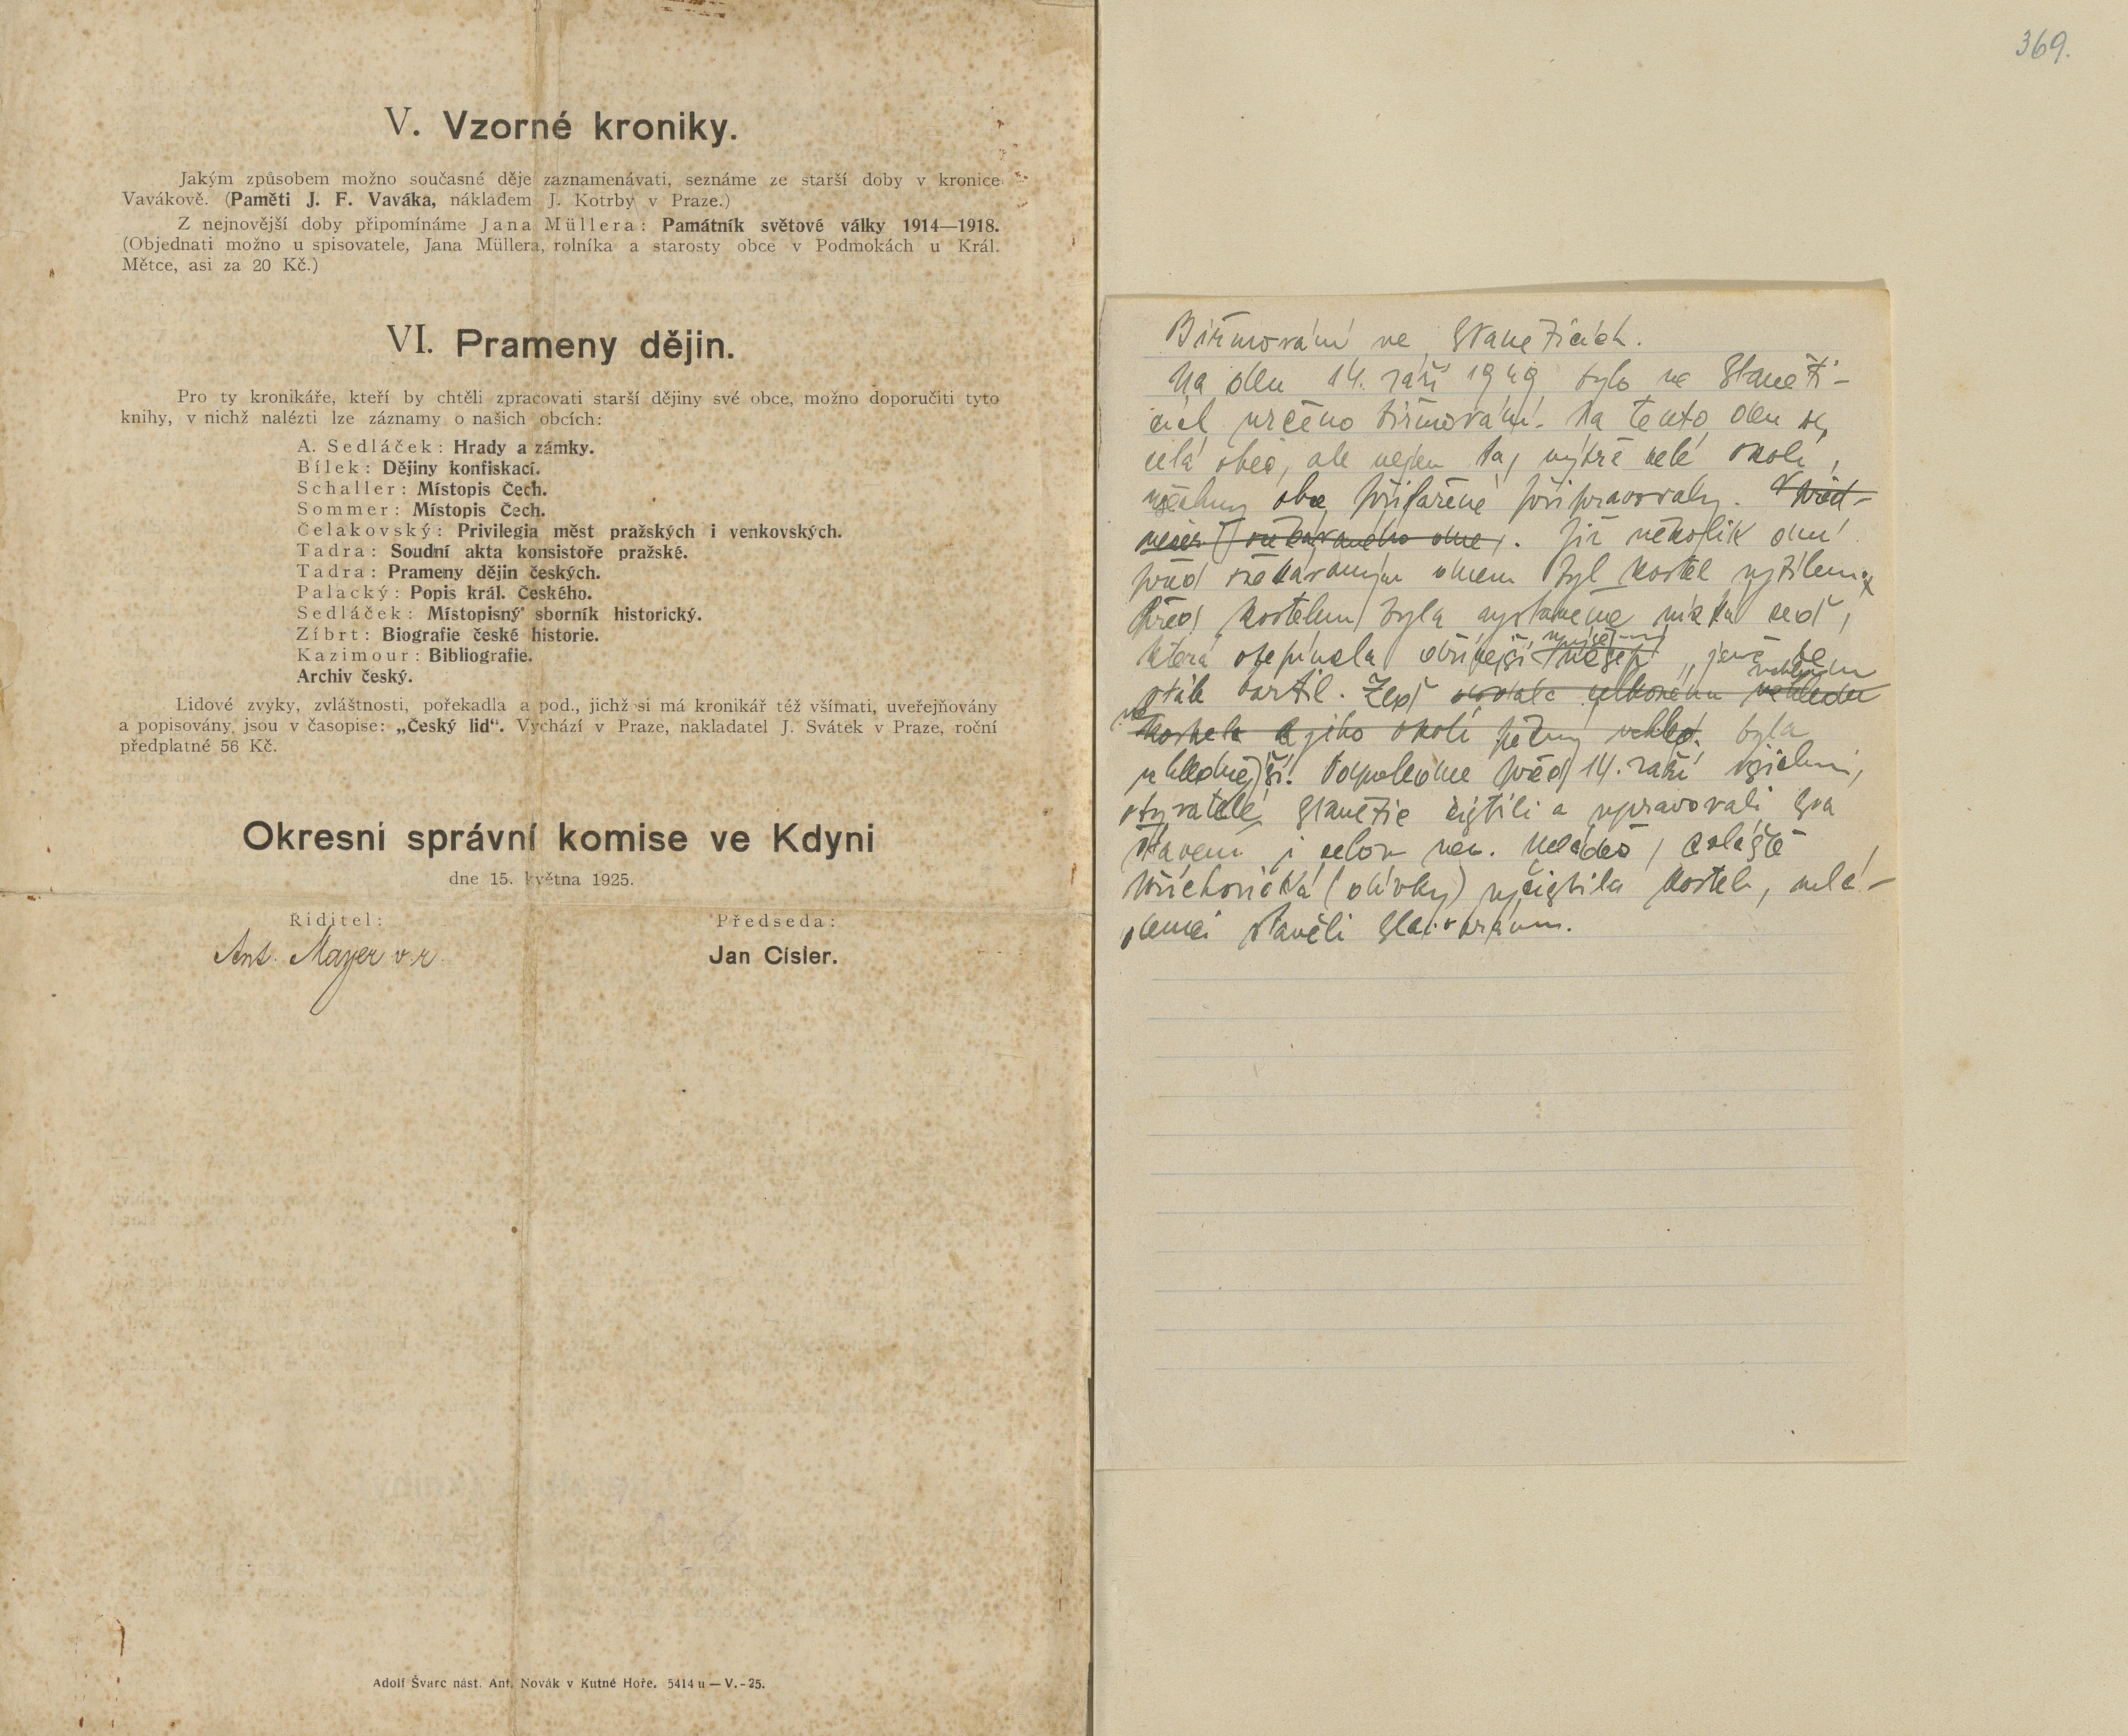 V. Vzorné kroniky.
Jakým způsobem možno současné děje zaznamenávati, seznáme ze starší doby v kronice
Vavákově. (Paměti J. F. Vaváka, nákladem J. Kotrby v Praze.)
Z nejnovější doby připomínáme Jana Müllera: Památník světové války 1914—1918.
(Objednati možno u spisovatele, Jana Müllera, rolníka a starosty obce v Podmokách u Král.
Mětce, asi za 20 Kč.)
VI. Prameny dějin.
Pro ty kronikáře, kteří by chtěli zpracovati starší dějiny své obce, možno doporučiti tyto
knihy, v nichž nalézti lze záznamy o našich obcích:
A. Sedláček: Hrady a zámky.
Bílek: Dějiny konfiskací.
Schaller: Místopis Čech.
Sommer: Místopis Čech.
Čelakovský: Privilegia měst pražských i venkovských.
Tadra: Soudní akta konsistoře pražské.
Tadra: Prameny dějin českých.
Palacký: Popis král. Českého.
Sedláček: Místopisný sborník historický.
Zíbrt: Biografie české historie.
Kazimour: Bibliografie.
Archiv český.
Lidové zvyky, zvláštnosti, pořekadla a pod., jichž si má kronikář též všímati, uveřejňovány
a popisovány jsou v časopise: „Český lid“. Vychází v Praze, nakladatel J. Svátek v Praze, roční
předplatné 56 Kč.
Okresní správní komise ve Kdyni
dne 15. května 1925.
Ředitel:
Předseda:
Ant. Mayer v. r.
Jan Císler.
Adolf Švarc nást. Ant. Novák v Kutné Hoře. 5414 u — V.-25.
369.
Biřmování ve Staněticích.
Na den 14. září 1949 bylo ve Staněti-
cích určeno biřmování. Na tento den se
celá obec, ale nejen ta, nýbrž celé okolí,
všechny obce přifařené připravovaly. V před-
večer očekávaného dne. Již několik dní
před očekávaným dnem byl kostel vybílen
Před kostelem byla vystavěna nízká zeď,
která obepínala jenž se
Zeď
kostela a jeho okolí byla
uhlednější. Odpoledne před 14. září všichni
obyvatelé Stanětic čistili a upravovali svá
stavení i celou ves. Mládež, zvláště
křichovická (dívky) vyčistila kostel, mlá-
denci stavěli slavobránu.